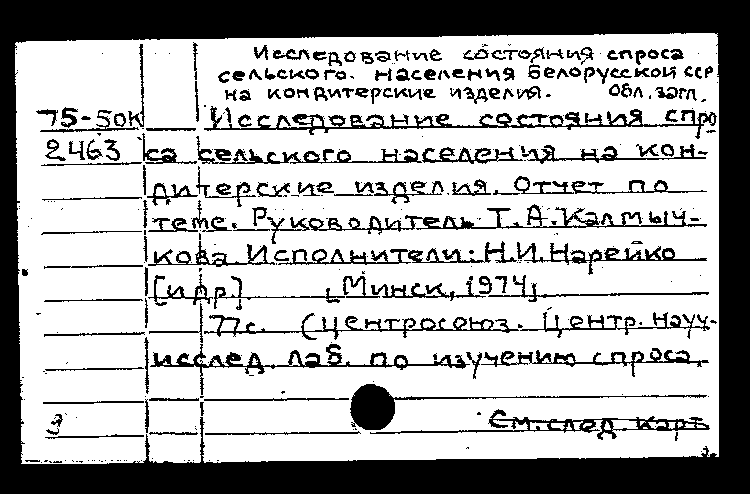 Исследование состояния спроса
сельского. населения Белорусской ССР
на кондитерские изделия. Обл. загл.
75-50к Исследование состояния спро
2463 са сельского населения на кон-
дитерские изделия. Отчет по
теме. Руководитель Т.А.Калмыч-
кова Исполнители: Н.И.Нарейко
[и др.] [Минск, 1974].
77с. (Центросоюз. Центр. науч-
исслед. лаб. по изучению спроса.
З См. след. карт